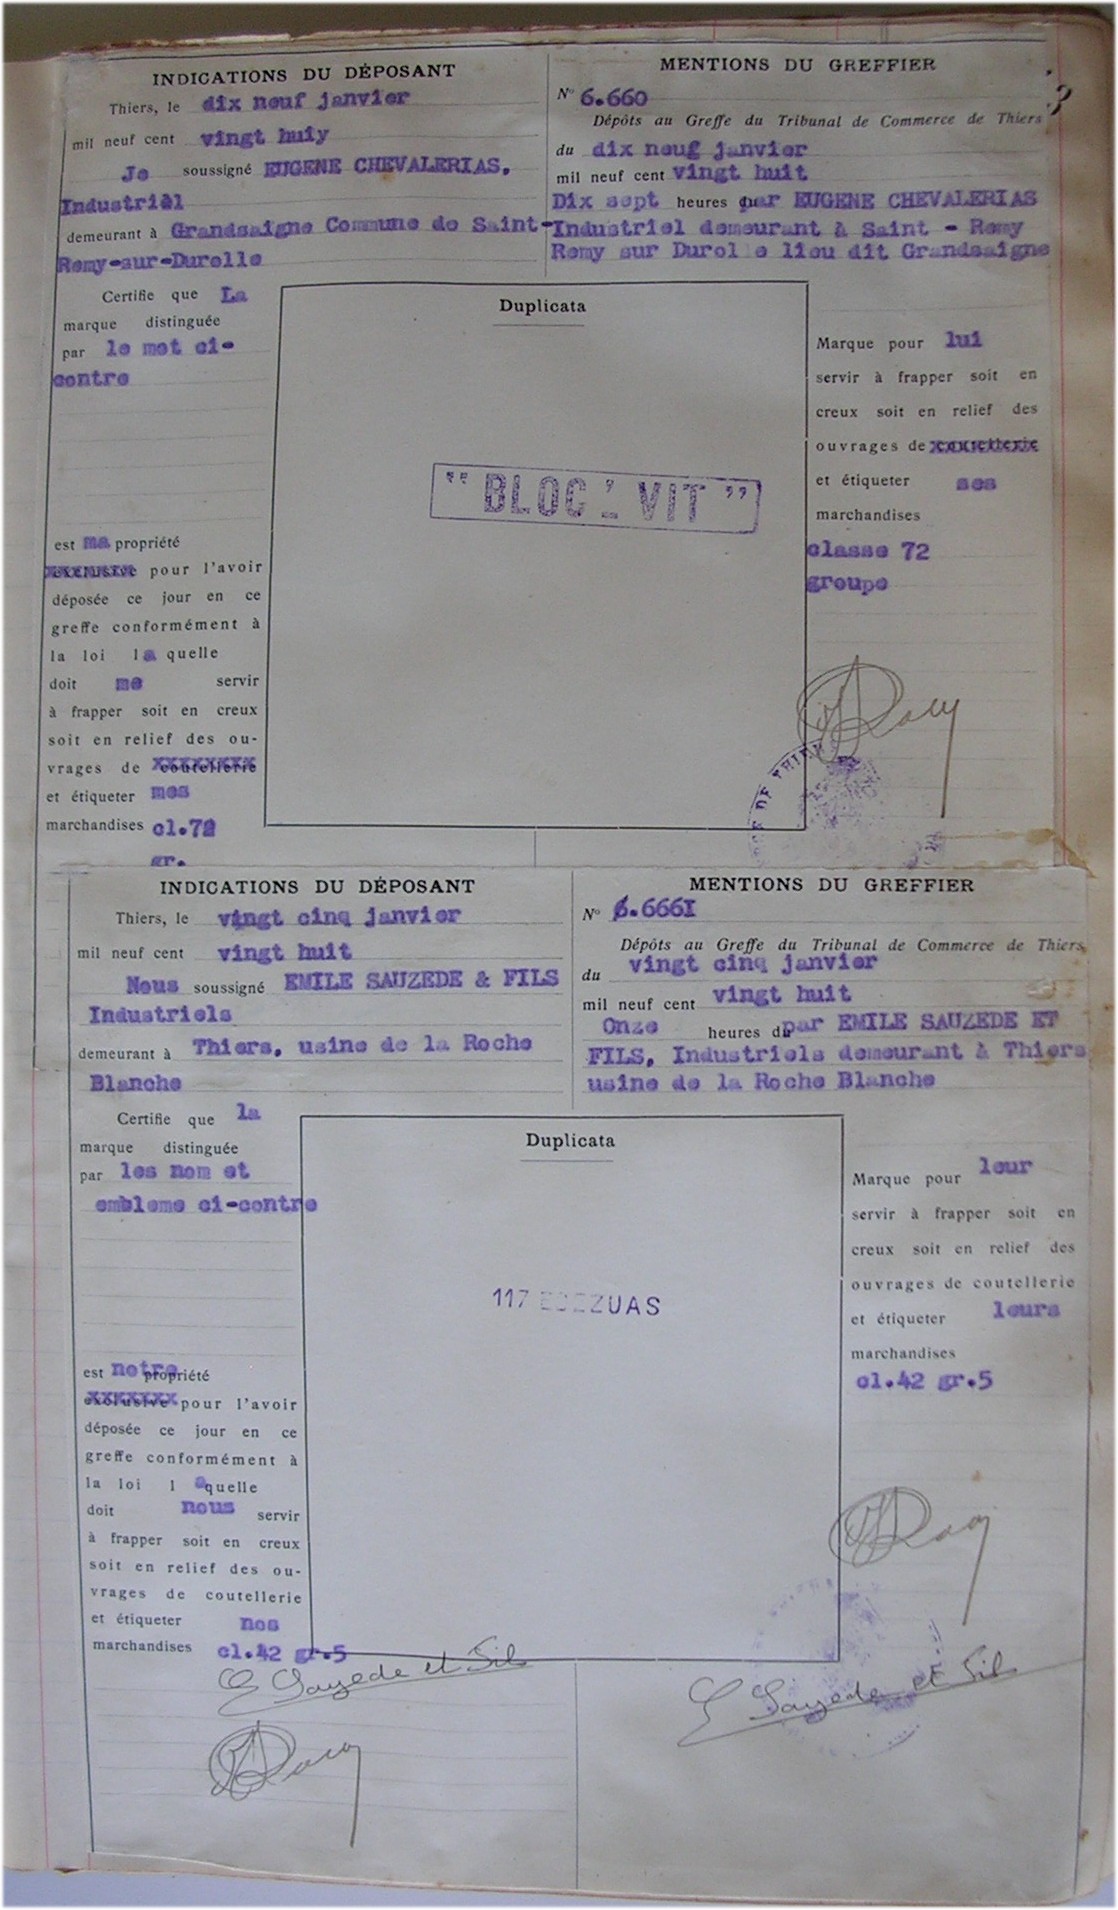 INDICATIONS DU DÉPOSANT
Thiers, le dix neuf janvier
mil neuf cent vingt huiy
Je soussigné EUGENE CHEVALERIAS,
Industriel
demeurant à Grandsaigne Commune de Saint-
Remy-sur-Durolle
MENTIONS DU GREFFIER
N° 6.660
3
Dépôts au Greffe du Tribunal de Commerce de Thiers
du dix neuf janvier
mil neuf cent vingt huit
Dix sept heures par EUGENE CHEVALERIAS
Industriel demeurant à Saint - Remy
Remy sur Durolle lieu dit Grandsaigne
Certifie que La
marque distinguée
par le mot ci-
contre
est ma propriété
exclusive pour l'avoir
déposée ce jour en ce
greffe conformément à
la loi la quelle
doit me servir
à frapper soit en creux
soit en relief des ou-
vrages de coutellerie
et étiqueter mes
marchandises cl.72
gr.
Duplicata
" BLOC ' VIT "
Marque pour lui
servir à frapper soit en
creux soit en relief des
ouvrages de coutellerie
et étiqueter ses
marchandises
classe 72
groupe
DE THIERS
INDICATIONS DU DÉPOSANT
Thiers, le vingt cinq janvier
mil neuf cent vingt huit
Nous soussigné EMILE SAUZEDE & FILS
Industriels
demeurant à Thiers, usine de la Roche
Blanche
MENTIONS DU GREFFIER
N° 6.6661
Dépôts au Greffe du Tribunal de Commerce de Thiers
du vingt cinq janvier
mil neuf cent vingt huit
Onze heures du par EMILE SAUZEDE ET
FILS, Industriels demeurant à Thiers
usine de la Roche Blanche
Certifie que la
marque distinguée
par les nom et
embleme ci-contre
est notre propriété
exclusive pour l'avoir
déposée ce jour en ce
greffe conformément à
la loi l aquelle
doit nous servir
à frapper soit en creux
soit en relief des ou-
vrages de coutellerie
et étiqueter nos
marchandises cl.42 gr.5
Duplicata
117 EDEZUAS
Marque pour leur
servir à frapper soit en
creux soit en relief des
ouvrages de coutellerie
et étiqueter leurs
marchandises
cl.42 gr.5
E Sauzede et Fils
E Sauzede et Fils